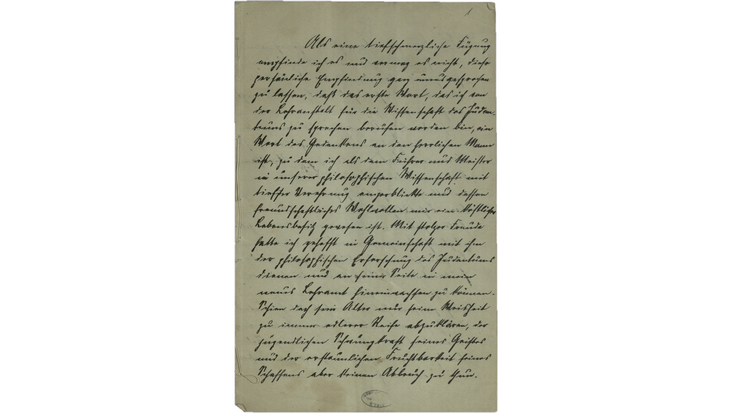 Als eine tiefschmerzliche Fügung
empfinde ich es und vermag es nicht, diese
persönliche Empfindung ganz unausgesprochen
zu lassen, daß das erste Wort, das ich an
der Lehranstalt für die Wissenschaft des Juden-
tums zu sprechen berufen worden bin, ein
Wort des Gedenkens an den herrlichen Mann
ist, zu dem ich als dem Führer und Meister
in unserer philosophischen Wissenschaft mit
tiefster Verehrung emporblickte und dessen
freundschaftliches Wohlwollen mir ein köstlicher
Lebensbesitz gewesen ist. Mit stolzer Freude
hatte ich gehofft in Gemeinschaft mit ihm
der philosophischen Erforschung des Judentums
dienen und an seiner Seite in mein
neues Lehramt hineinwachsen zu können.
Schien doch sein Alter nur seine Weisheit
zu immer edlerer Reife abzuklären, der
jugendlichen Schwungkraft seines Geistes
und der erstaunlichen Fruchtbarkeit seines
Schaffens aber keinen Abbruch zu thun.